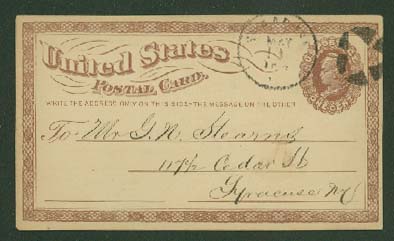 United States
POSTAL CARD.
WRITE THE ADDRESS ONLY ON THIS SIDE—THE MESSAGE ON THE OTHER
To Mr G. N. Stearns
117½ Cedar St
Syracuse NY